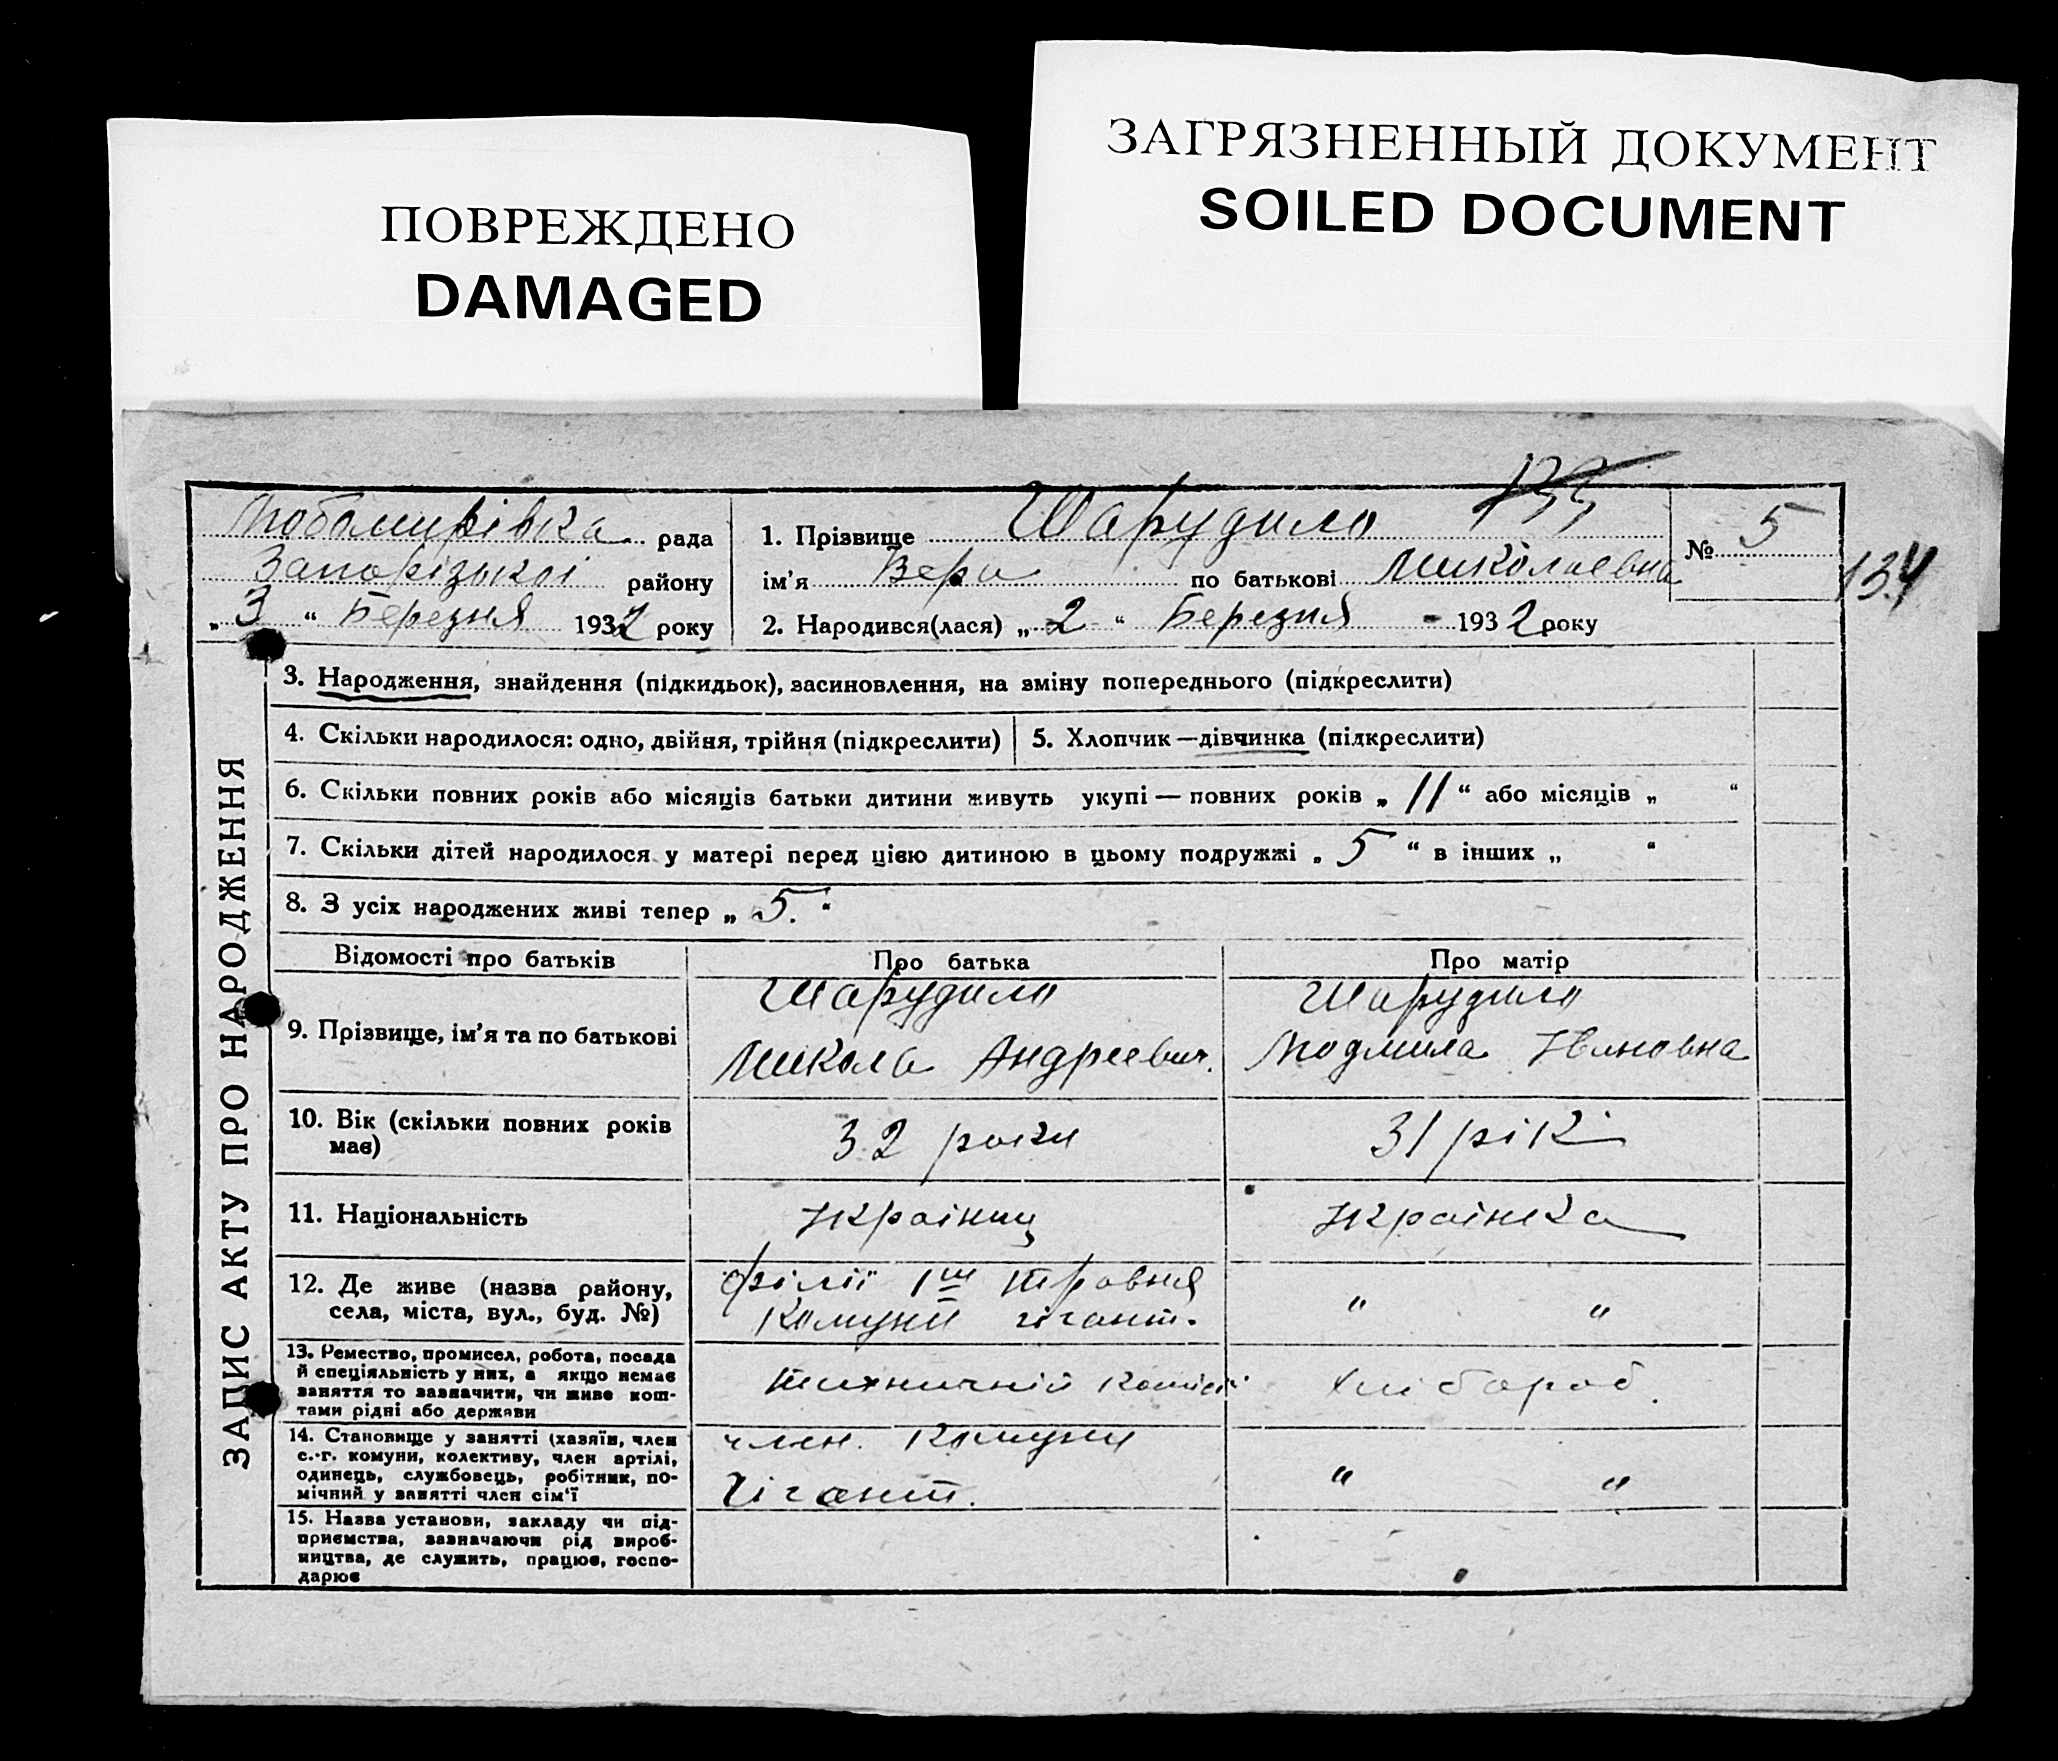 ПОВРЕЖДЕНО
DAMAGED
ЗАГРЯЗНЕННЫЙ ДОКУМЕНТ
SOILED DOCUMENT
133
134
Любомирівка рада
Запорізької району
„ 3 “ Березня 1932 року
1. Прізвище Шарудило
№ 5
ім'я Вера по батькові Миколаевна
2. Народився(лася) „ 2 “ Березня 1932 року
ЗАПИС АКТУ ПРО НАРОДЖЕННЯ
3. Народження, знайдення (підкидьок), засиновлення, на зміну попереднього (підкреслити)
4. Скільки народилося: одно, двійня, трійня (підкреслити)
5. Хлопчик — дівчинка (підкреслити)
6. Скільки повних років або місяців батьки дитини живуть укупі — повних років „ 11 “ або місяців „ “
7. Скільки дітей народилося у матері перед цією дитиною в цьому подружжі „ 5 “ в інших „ “
8. З усіх народжених живі тепер „ 5. “
Відомості про батьків
Про батька
Про матір
9. Прізвище, ім'я та по батькові
Шарудило
Микола Андреевич.
Шарудило
Людмила Ивановна
10. Вік (скільки повних років
має)
32 роки
31 рік
11. Національність
Українец
Українка
12. Де живе (назва району,
села, міста, вул., буд. №)
філії 1ш Травня
Комуни гігант.
“ “
13. Ремество, промисел, робота, посада
й спеціяльність у них, а якщо немає
заняття то зазначити, чи живе кош-
тами рідні або держави
хлібороб.
14. Становище у занятті (хазяїн, член
с.-г. комуни, колективу, член артілі,
одинець, службовець, робітник, по-
мічний у занятті член сім'ї
член. Комуни
Гігант.
“ “
15. Назва установи, закладу чи під-
приємства, зазначаючи рід вироб-
ництва, де служить, працює, госпо-
дарює